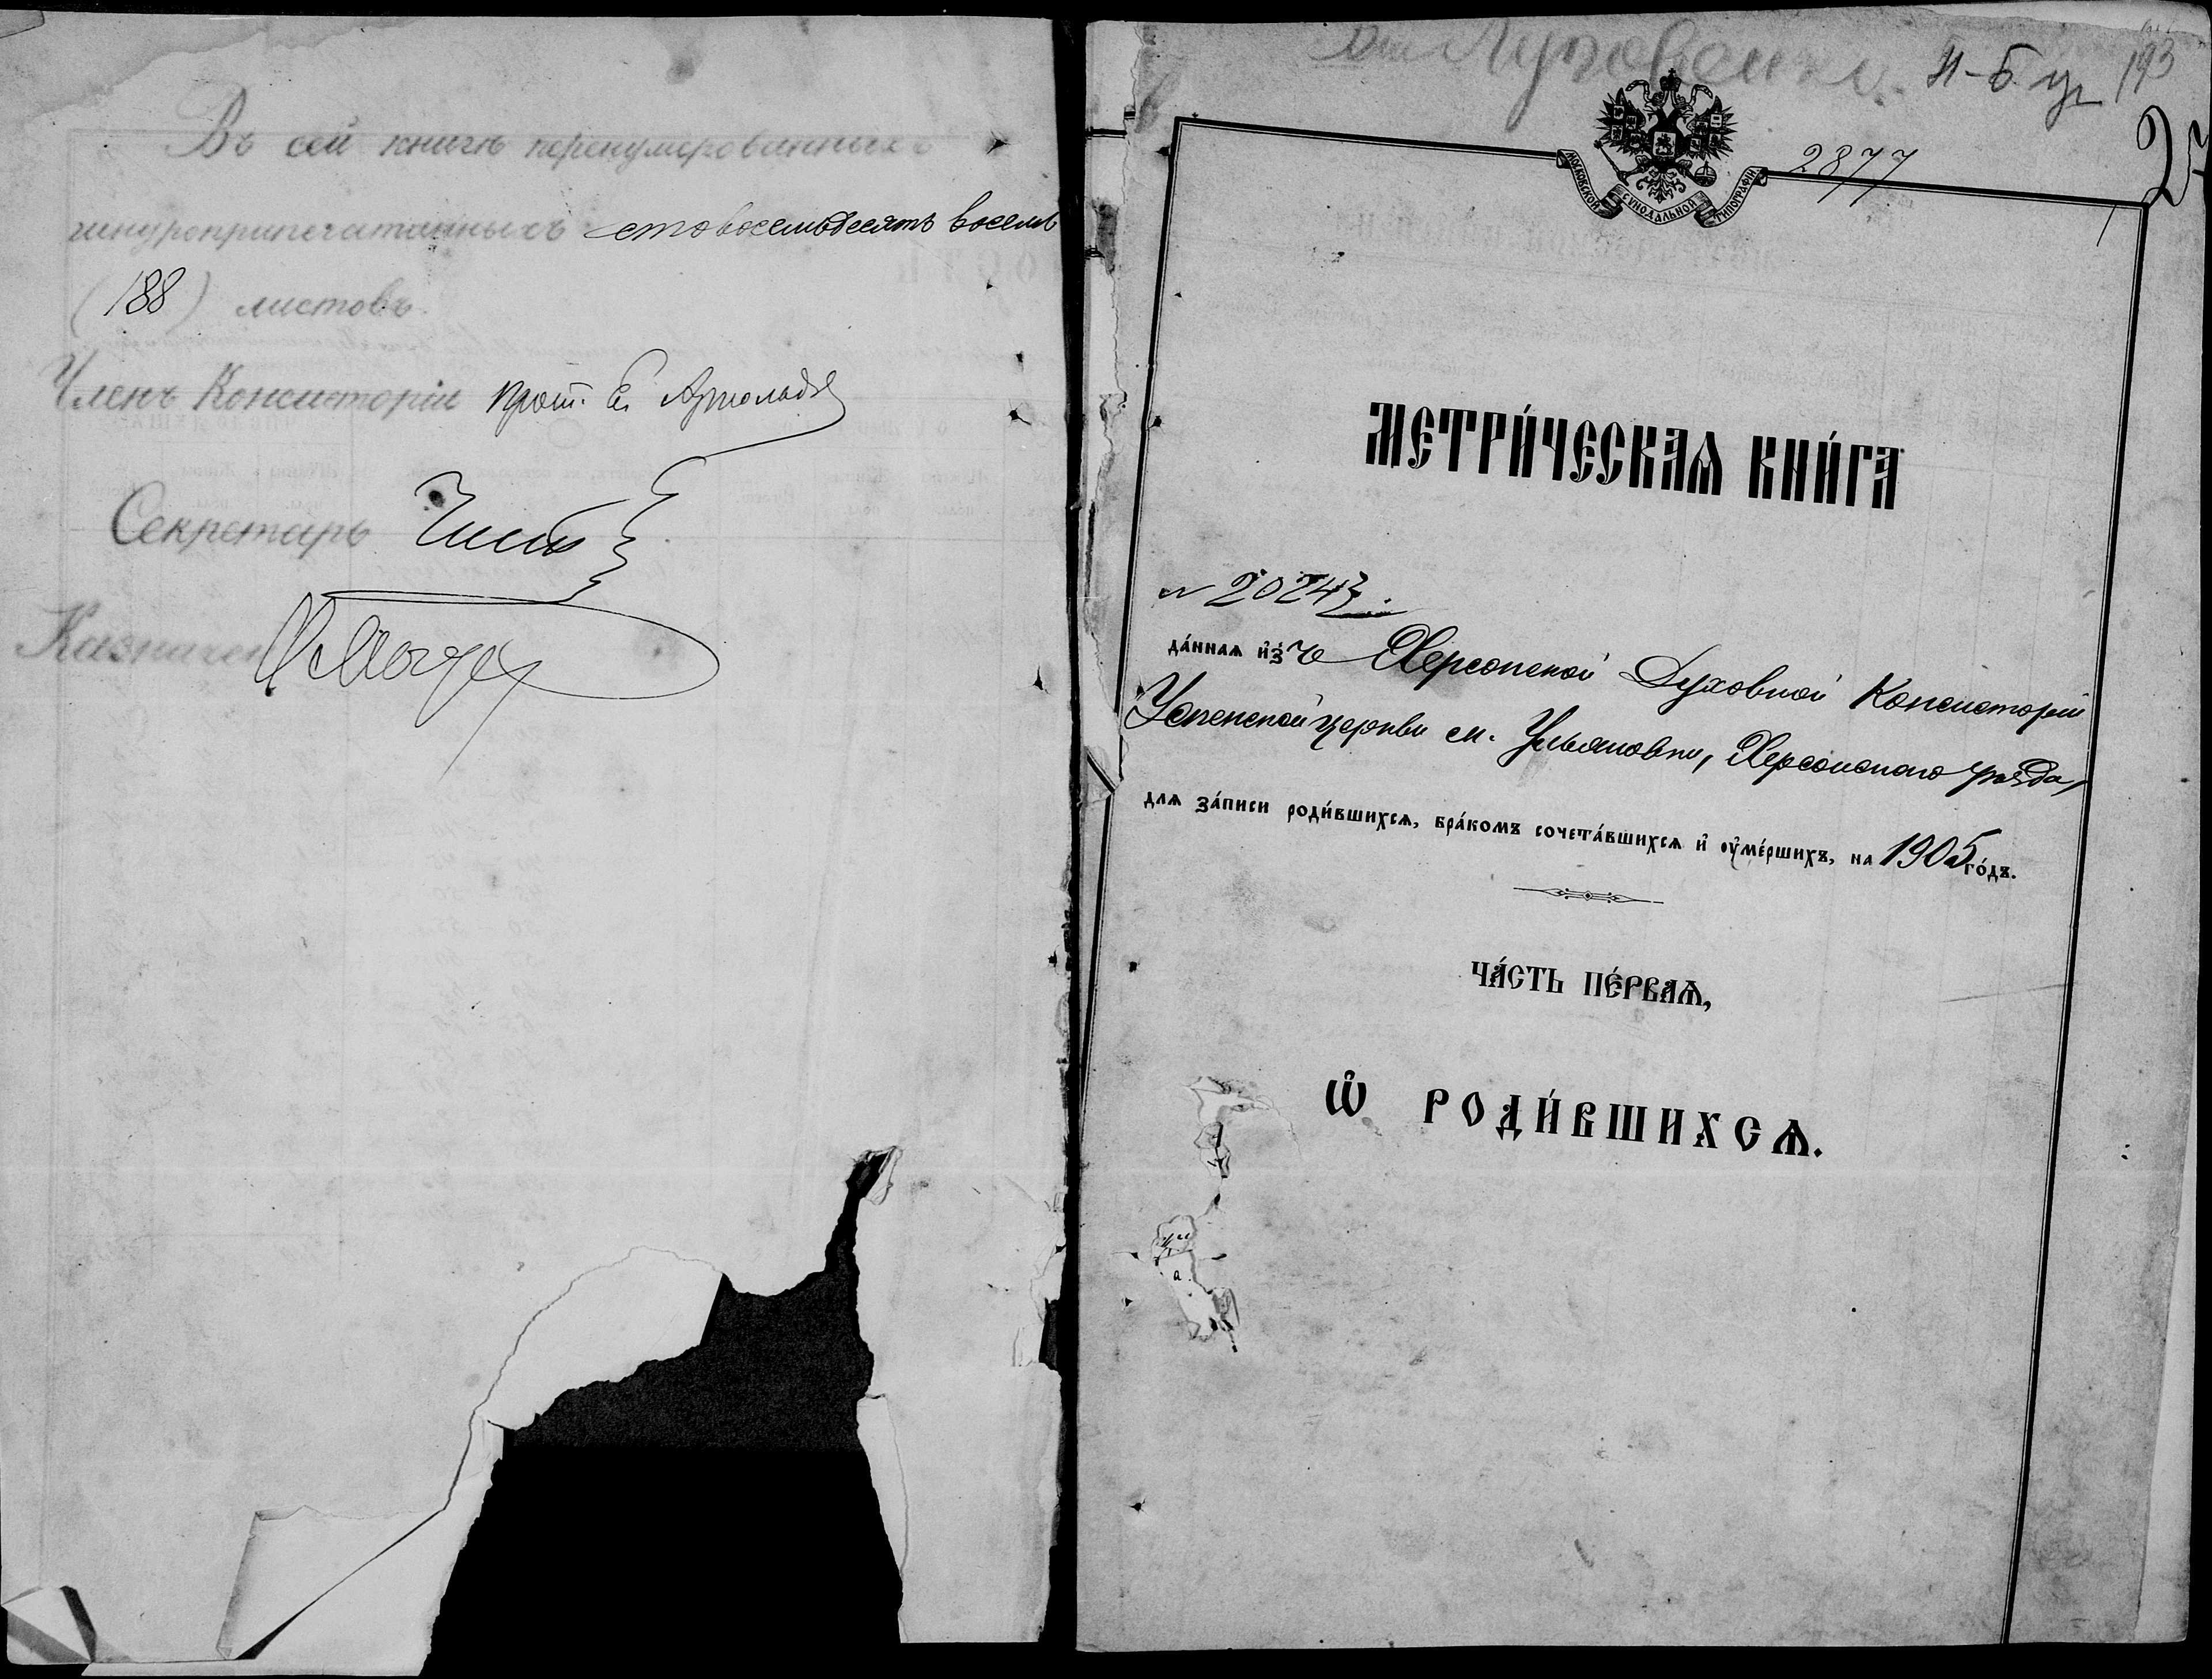 Въ сей книгѣ перенумерованныхъ
шнуроприпечатанныхъ стовосемьдесятъ восемь
(188) листовъ.
Членъ Консисторіи прот.
Секретарь
Казначей
И-Б. у. 193
МОСКОВСКОЙ СѴНОДАЛЬНОЙ ТИПОГРАФІИ
2877
МЕТРИ́ЧЕСКАѦ КНИ́ГА
№ 20243.
да́ннаѧ и҆зъ Херсонской Духовной Консисторіи
Успенской церкви см. Ульяновки, Херсонскаго уѣзда,
для за́писи роди́вшихсѧ, бра́комъ сочета́вшихсѧ и҆ ᲂу҆ме́ршихъ, на 1905 го́дъ.
ЧА́СТЬ ПЕ́РВАѦ,
Ѽ РОДИ́ВШИХСѦ.